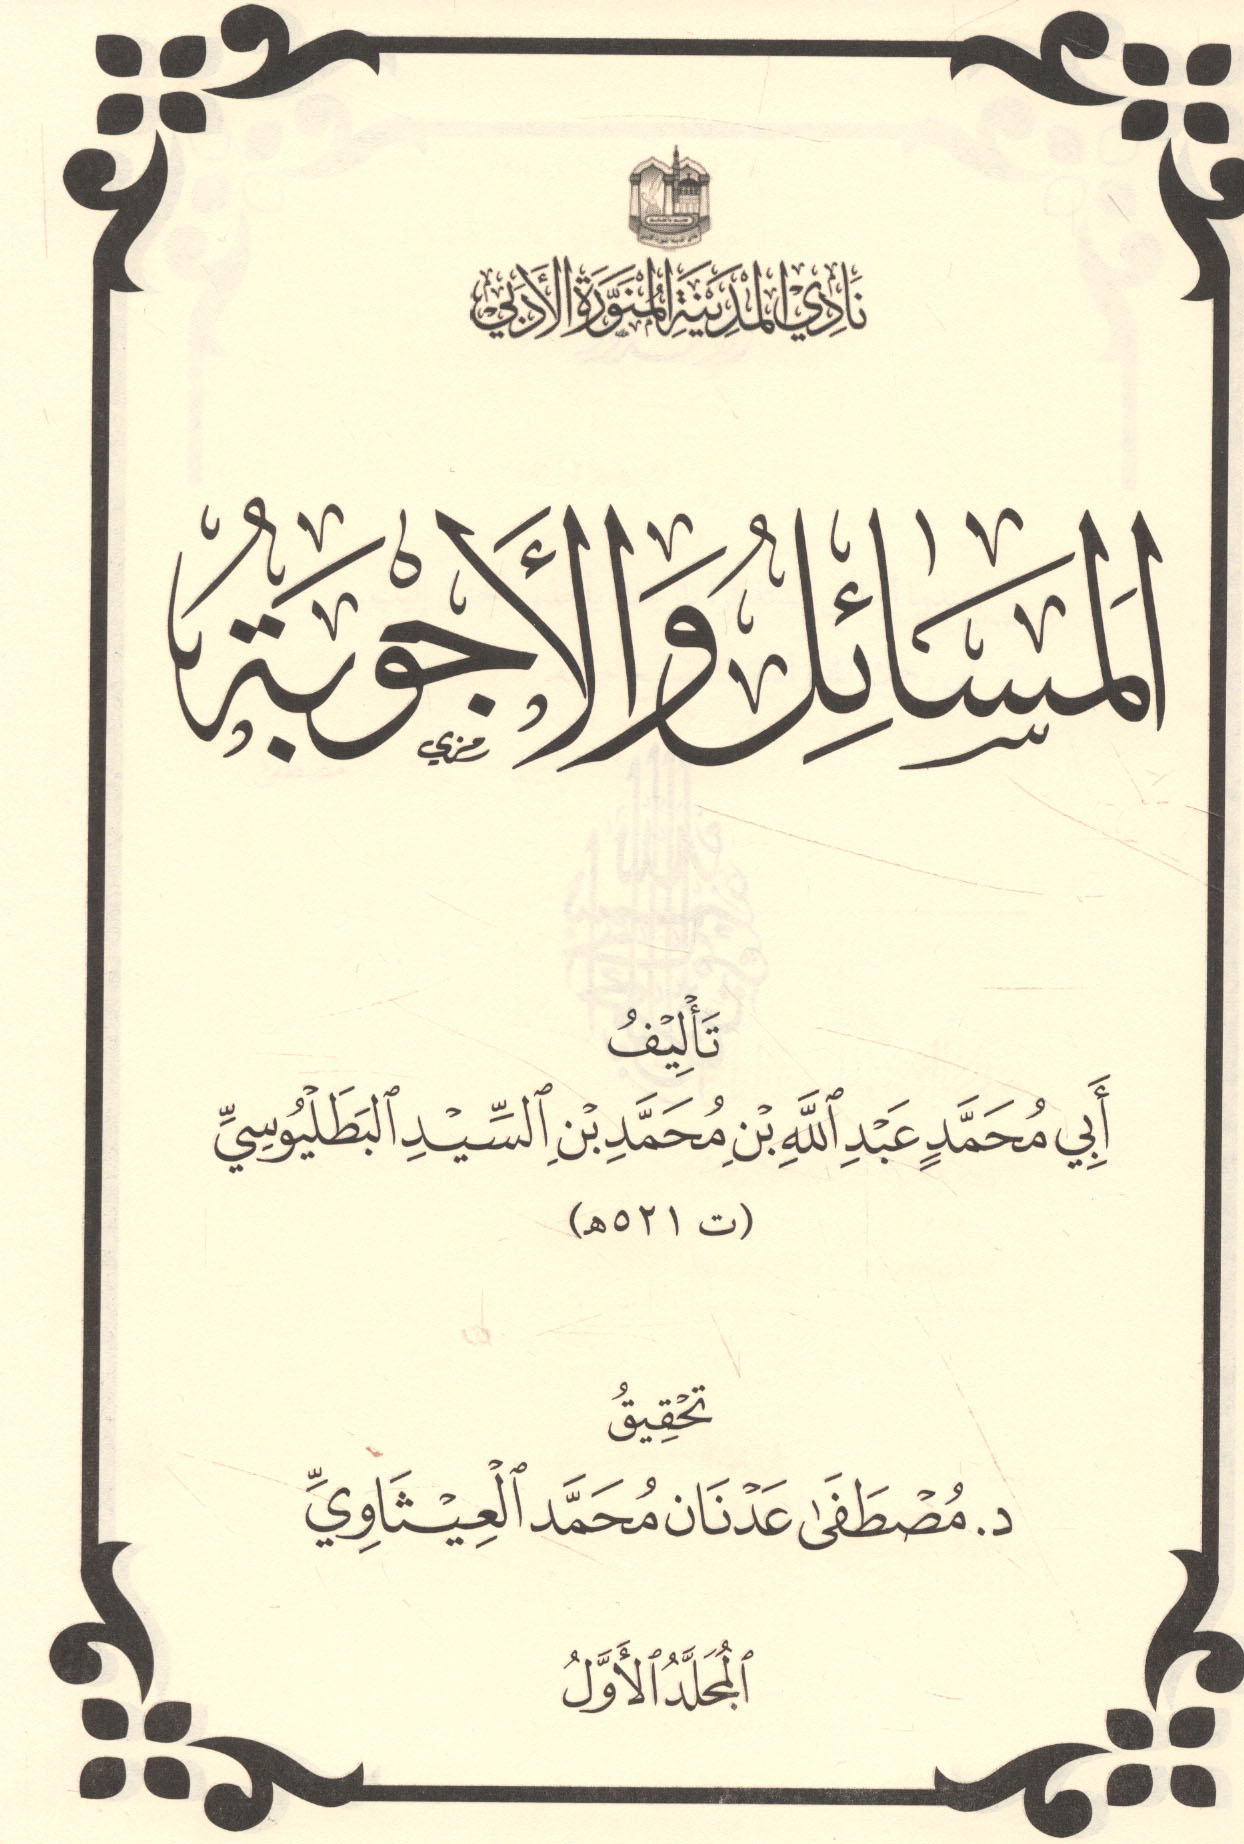 نَادِي المَدِينَةِ المُنَوَّرَةِ الأَدَبِي
المَسَائِلُ وَالأَجْوِبَةُ
رمزي
تَأْلِيْفُ
أَبِي مُحَمَّدٍ عَبْدِ ٱللَّهِ بْنِ مُحَمَّدِ بْنِ ٱلسِّيْدِ ٱلبَطَلْيُوسِيِّ
(ت ٥٢١ه)
تَحْقِيقُ
د. مُصْطَفَىٰ عَدْنَان مُحَمَّد ٱلْعِيْثَاوِيِّ
ٱلمُجَلَّدُ ٱلأَوَّلُ